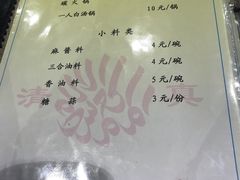 煤火锅
一人白油锅 10元/锅
小料类
麻酱料 4元/碗
三合油料 4元/碗
香油料 5元/碗
糖蒜 3元/份
清真